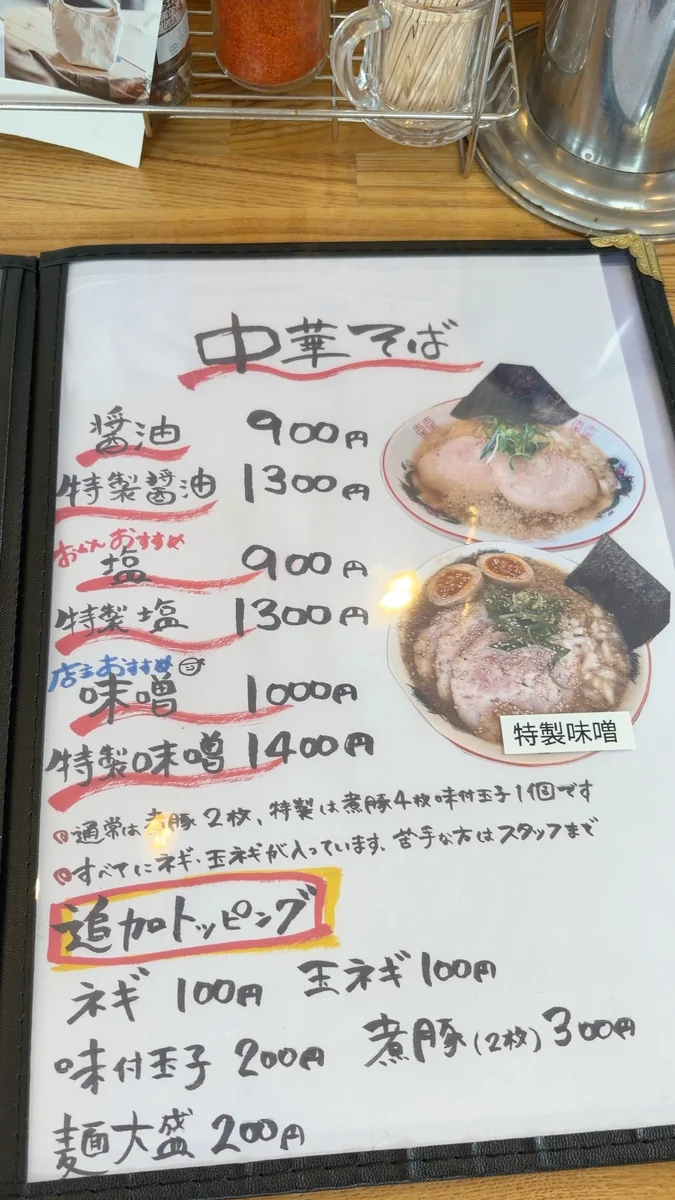 中華そば
醤油 900円
特製醤油 1300円
おすすめ
塩 900円
特製塩 1300円
店主おすすめ
味噌 1000円
特製味噌 1400円
特製味噌
通常は煮豚2枚、特製は煮豚4枚味付玉子1個です
すべてにネギ・玉ネギが入っています、苦手な方はスタッフまで
追加トッピング
ネギ 100円 玉ネギ 100円
味付玉子 200円 煮豚(2枚) 300円
麺大盛 200円